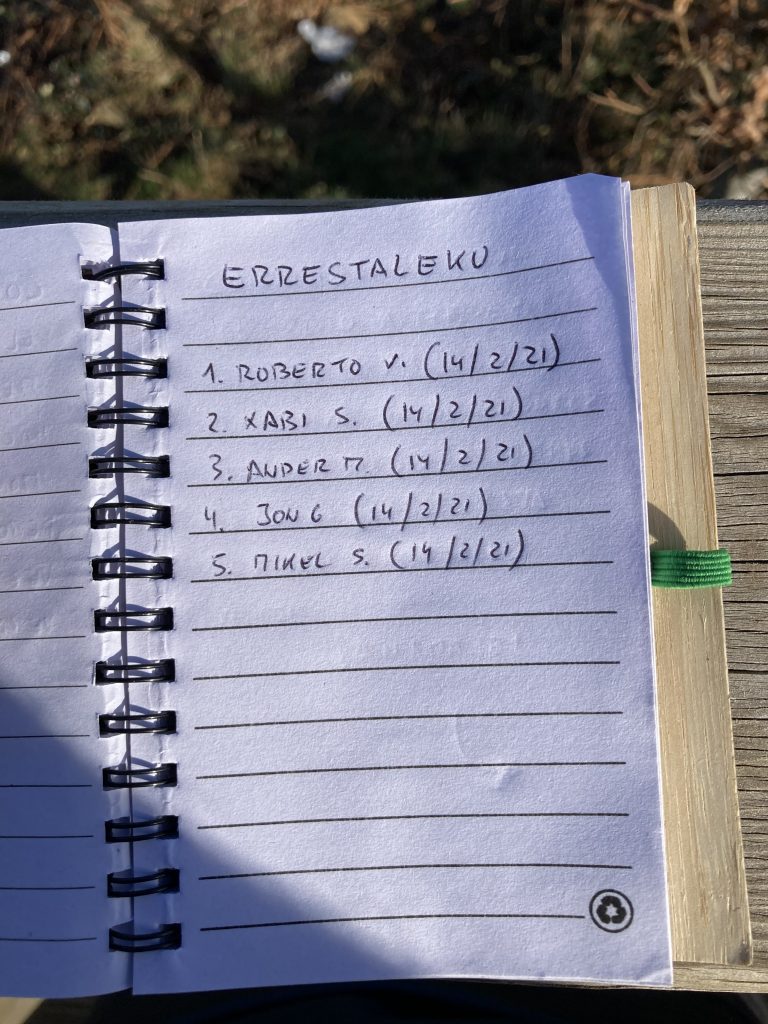 ERRESTALEKU
1. ROBERTO V. (14/2/21)
2. XABI S. (14/2/21)
3. ANDER M. (14/2/21)
4. JON G (14/2/21)
5. MIKEL S. (14/2/21)